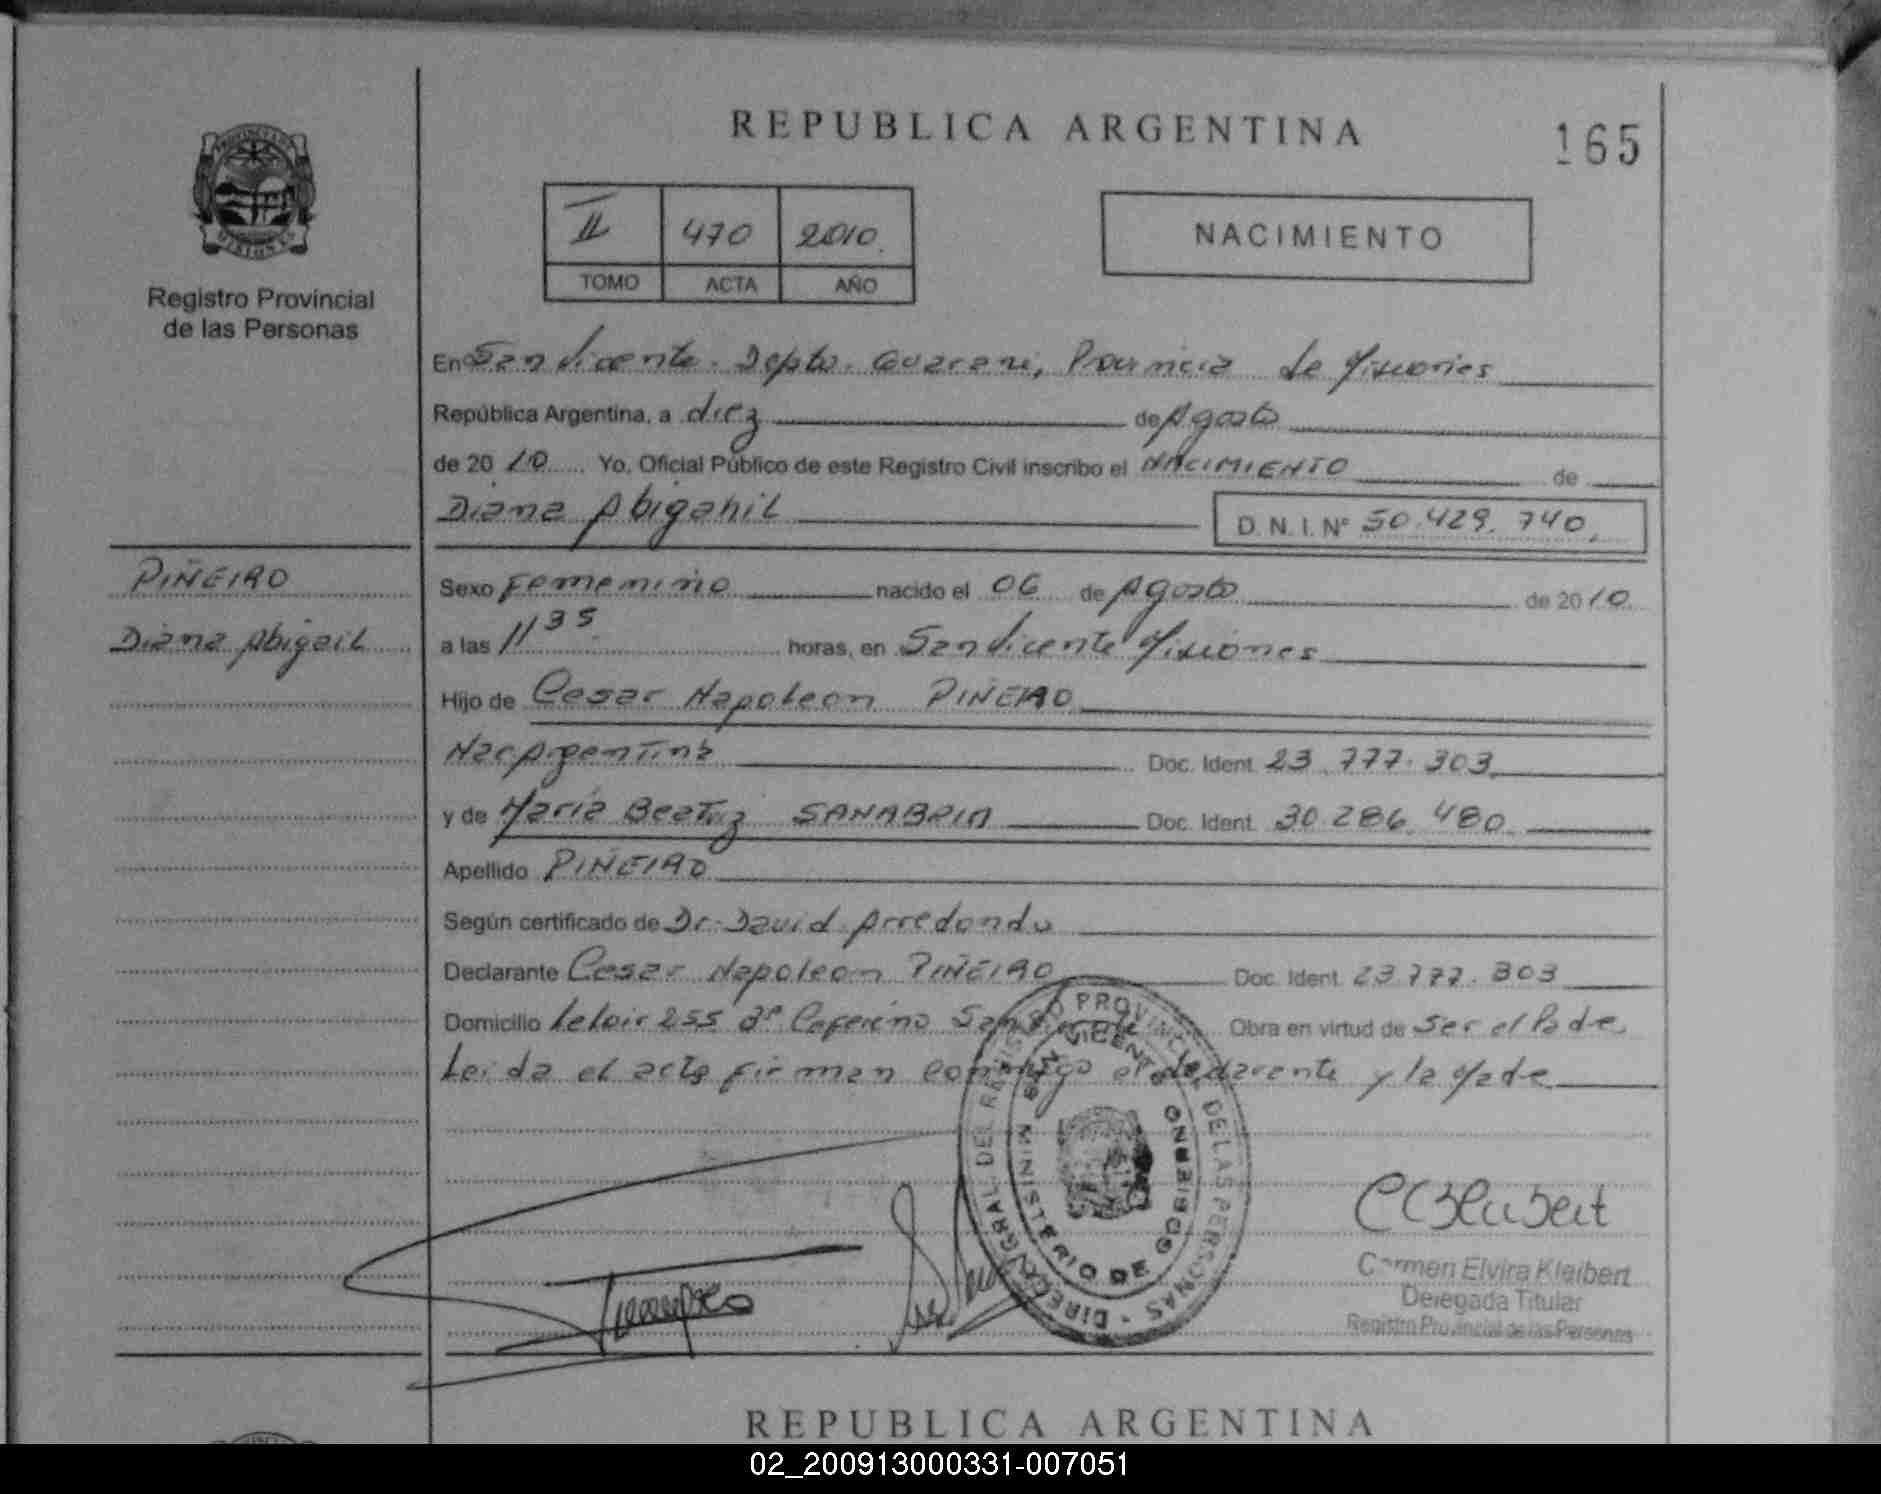 REPUBLICA ARGENTINA
165
PROVINCIA DE
MISIONES
Registro Provincial
de las Personas
II 470 2010.
TOMO ACTA AÑO
NACIMIENTO
En San Vicente. Depto. Guarani, Provincia de Misiones
República Argentina, a diez de Agosto
de 20 10 Yo, Oficial Público de este Registro Civil inscribo el NACIMIENTO de
Diana Abigahil D. N. I. Nº 50.429.740.
PIÑEIRO
Diana Abigail
Sexo Femenino nacido el 06 de Agosto de 20 10.
a las 11 35 horas, en San Vicente Misiones
Hijo de Cesar Napoleon PIÑEIRO
Nac Argentina Doc. Ident. 23.777.303
y de Maria Beatriz SANABRIA Doc. Ident. 30.286.480
Apellido PIÑEIRO
Según certificado de Dr. David Arredondo
Declarante Cesar Napoleon PIÑEIRO Doc. Ident. 23.777.303
Domicilio Leloir 255 Bº Ceferino San Vicente Obra en virtud de Ser el Padre
Leida el acta firman conmigo el declarante y la Madre
DIRECC. GRAL. DEL REGISTRO PROVINCIAL DE LAS PERSONAS -
SAN VICENTE
MINISTERIO DE GOBIERNO
Carmen Elvira Kleibert
Delegada Titular
Registro Provincial de las Personas
REPUBLICA ARGENTINA
02_200913000331-007051